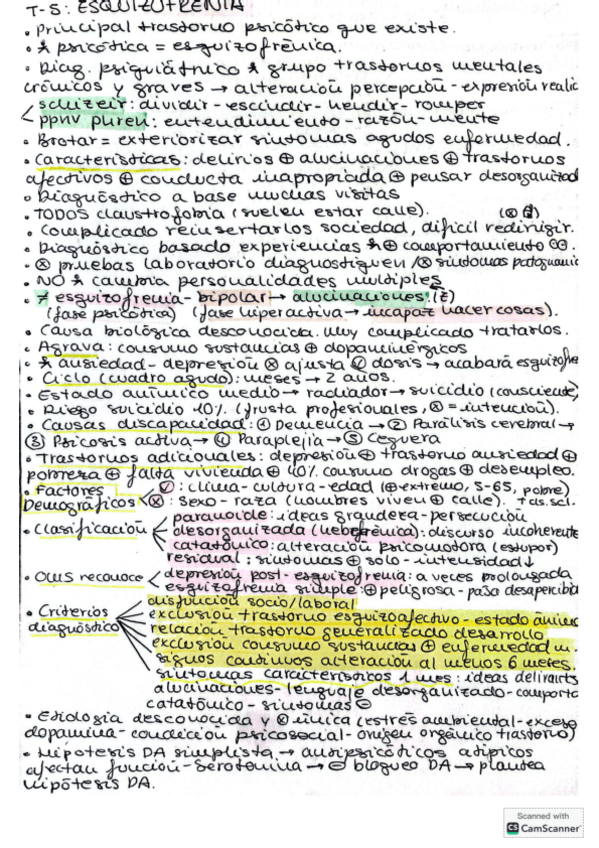 T-5: ESQUIZOFRENIA
• Principal trastorno psicótico que existe.
• psicótica = esquizofrénica.
• Diag. psiquiátrico grupo trastornos mentales
crónicos y graves → alteración percepción - expresión realid
schizein: dividir - escindir - hendir - romper
phren: entendimiento - razón - mente
• Brotar = exteriorizar síntomas agudos enfermedad.
• Características: delirios ⊕ alucinaciones ⊕ trastornos
afectivos ⊕ conducta inapropiada ⊕ pensar desorganizad
• Diagnóstico a base muchas visitas
• TODOS claustrofobia (suelen estar calle).
• Complicado reinsertarlos sociedad, difícil redirigir.
• Diagnóstico basado experiencias ⊕ comportamiento
• ⊗ pruebas laboratorio diagnostiquen / ⊗ síntomas patognomic
• NO cambia personalidades múltiples
• ≠ esquizofrenia - bipolar → alucinaciones.
(fase psicótica) (fase hiperactiva → incapaz hacer cosas).
• Causa biológica desconocida. Muy complicado tratarlos.
• Agrava: consumo sustancias ⊕ dopaminérgicos
• ansiedad - depresión ⊗ ajusta dosis → acabará esquizofre
• Ciclo (cuadro agudo): meses → 2 años.
• Estado anímico medio → radiador → suicidio (consciente)
• Riesgo suicidio 10% (frusta profesionales, ⊗ = intención).
• Causas discapacidad: ① Demencia → ② Parálisis cerebral →
③ Psicosis activa → ④ Paraplejia → ⑤ Ceguera
• Trastornos adicionales: depresión ⊕ trastorno ansiedad ⊕
pobreza ⊕ falta vivienda ⊕ 40% consumo drogas ⊕ desempleo.
• Factores : clima - cultura - edad (⊕ extremo, S-65, pobre)
Demográficos ⊗: sexo - raza (hombres viven ⊕ calle).
paranoide: ideas grandeza - persecución
• Clasificación desorganizada (hebefrénica): discurso incoherente
catatónico: alteración psicomotora (estupor)
residual: síntomas ⊕ solo - intensidad ↓
• OMS reconoce < depresión post-esquizofrenia: a veces prolongada
esquizofrenia simple: ⊕ peligrosa - pasa desapercibid
disfunción socio/laboral
• Criterios exclusión trastorno esquizoafectivo - estado ánimo
diagnóstico relación trastorno generalizado desarrollo
exclusión consumo sustancias ⊕ enfermedad m.
signos continuos alteración al menos 6 meses.
síntomas característicos 1 mes: ideas delirants
alucinaciones - lenguaje desorganizado - comporta
catatónico - síntomas ⊖
• Etiología desconocida y ⊗ única (estrés ambiental - exceso
dopamina - condición psicosocial - origen orgánico trastorno)
• Hipótesis DA simplista → antipsicóticos atípicos
afectan función - serotonina → ⊖ bloqueo DA → plantea
hipótesis DA.
Scanned with
CS CamScanner